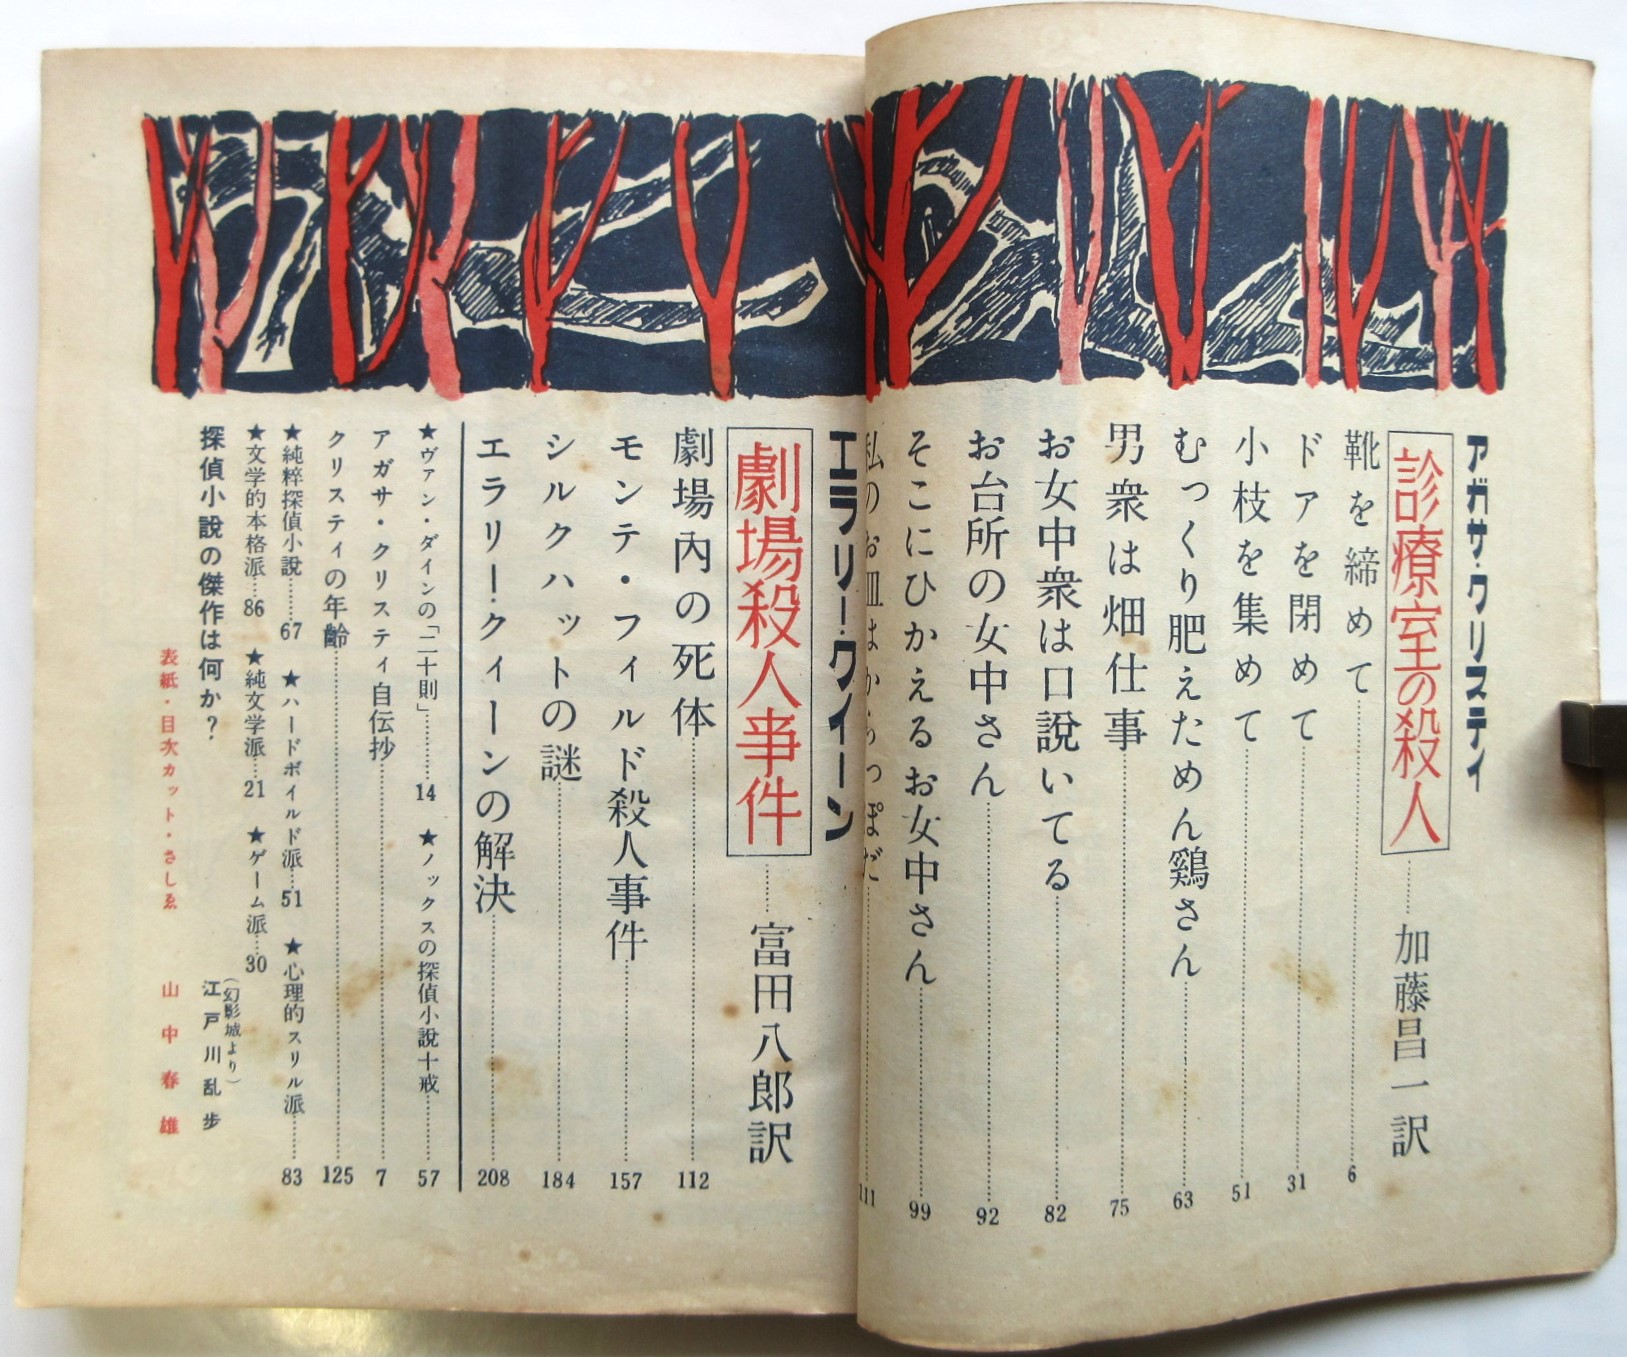 アガサ・クリスティ
診療室の殺人……加藤昌一訳
靴を締めて……6
ドアを閉めて……31
小枝を集めて……51
むっくり肥えためん鶏さん……63
男衆は畑仕事……75
お女中衆は口説いてる……82
お台所の女中さん……92
そこにひかえるお女中さん……99
私のお皿はからっぽだ……111
エラリー・クイーン
劇場殺人事件……富田八郎訳
劇場內の死体……112
モンテ・フィルド殺人事件……157
シルクハットの謎……184
エラリー・クィーンの解決……208
★ヴァン・ダインの「二十則」……14 ★ノックスの探偵小説十戒……57
アガサ・クリスティ自伝抄……7
クリスティの年齢……125
★純粋探偵小説……67 ★ハードボイルド派…51 ★心理的スリル派……83
★文学的本格派…86 ★純文学派…21 ★ゲーム派…30
探偵小説の傑作は何か？ (幻影城より) 江戸川乱歩
表紙・目次カット・さしゑ 山中春雄